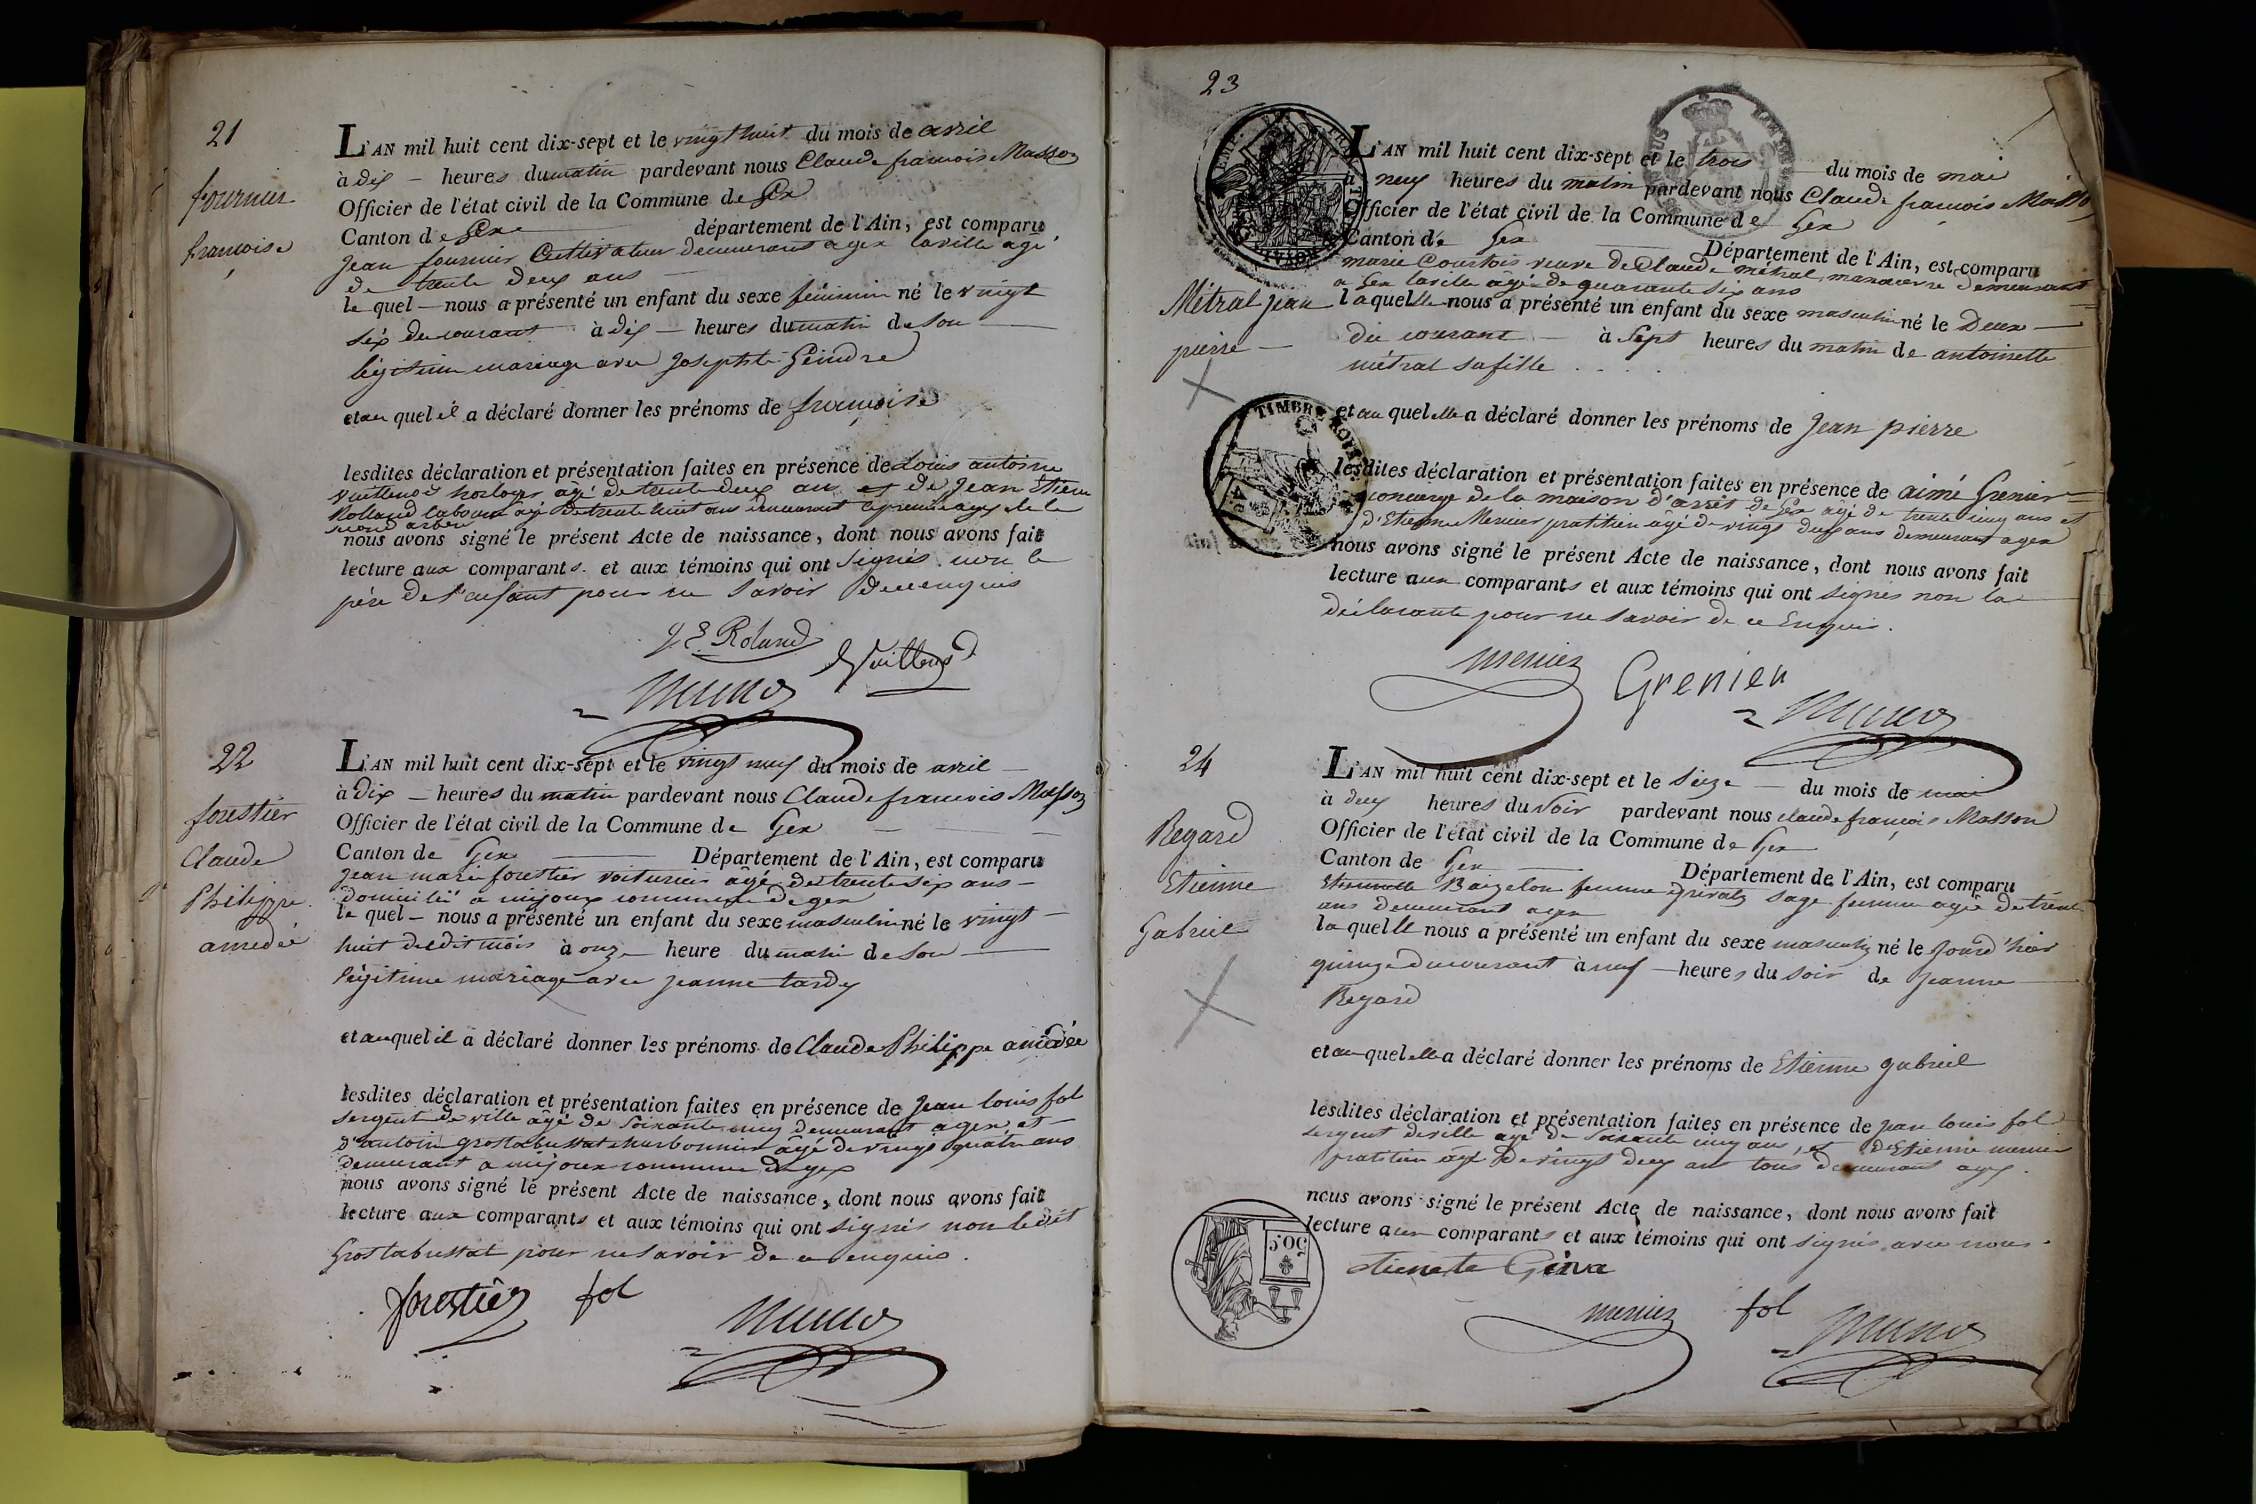 21
fournier
françoise
L'AN mil huit cent dix-sept et le vingt huit du mois de avril
à dix – heures du matin pardevant nous Claude françois Masson
Officier de l'état civil de la Commune de Gex
Canton de Gex département de l'Ain, est comparu
Jean fournier Cultivateur demeurant a gex la ville agé
de trente deux ans
le quel – nous a présenté un enfant du sexe féminin né le vingt
six du courant à dix – heures du matin de son
légitime mariage avec Josephte Geindre
et au quel il a déclaré donner les prénoms de françoise
lesdites déclaration et présentation faites en présence de Louis antoine
Vuillenod horloger âgé de trente deux ans et de Jean Etienne
Rolland laboureur agé de trente huit ans demeurant
nous avons signé le présent Acte de naissance, dont nous avons fait
lecture aux comparants et aux témoins qui ont signés non le
père de l'enfant pour ne savoir de ce enquis
J E. Roland
Vuillenod
22
forestier
Claude
Philippe
amedée
L'AN mil huit cent dix-sept et le vingt neuf du mois de avril –
à dix – heures du matin pardevant nous Claude francois Masson
Officier de l'état civil de la Commune de Gex
Canton de Gex Département de l'Ain, est comparu
Jean marie forestier voiturier âgé de trente six ans –
domicilié a mijoux commune de gex
le quel – nous a présenté un enfant du sexe masculin né le vingt –
huit dudit mois à onze heure du matin de son
légitime mariage avec jeanne tardy
et auquel il a déclaré donner les prénoms de Claude Philippe amédée
lesdites déclaration et présentation faites en présence de Jean louis fol
sergent de ville âgé de soixante cinq demeurant a gex et –
d'antoine grostabussiat charbonnier âgé de vingt quatre ans
demeurant a mijoux commune de gex
nous avons signé le présent Acte de naissance, dont nous avons fait
lecture aux comparants et aux témoins qui ont signés non ledit
Grostabussiat pour ne savoir de ce enquis.
forestier fol
23
L'AN mil huit cent dix-sept et le trois du mois de mai
à neuf heures du matin pardevant nous Claude françois Masson
Officier de l'état civil de la Commune de Gex
Canton de Gex Département de l'Ain, est comparu
marie Courtois veuve de Claude métral, manœuvre demeurant
a Gex la ville âgée de quarante six ans
Métral jean
pierre
laquelle nous a présenté un enfant du sexe masculin né le Deux –
du courant – à Sept heures du matin de antoinette
métral sa fille
TIMBRE ROYAL
et au quel elle a déclaré donner les prénoms de Jean pierre
lesdites déclaration et présentation faites en présence de aimé Grenier
concierge de la maison d'arrêt de Gex âgé de trente cinq ans et
d'Etienne Mercier pratitien âgé de vingt deux ans demeurant a gex
nous avons signé le présent Acte de naissance, dont nous avons fait
lecture aux comparants et aux témoins qui ont signés non la
déclarante pour ne savoir de ce Enquis.
Grenier
24
Regard
Etienne
Gabriel
L'AN mil huit cent dix-sept et le seize – du mois de mai
à deux heures du soir pardevant nous claude françois Masson
Officier de l'état civil de la Commune de Gex
Canton de Gex Département de l'Ain, est comparu
femme sage femme agée de trente
ans demeurant a gex
laquelle nous a présenté un enfant du sexe masculin né le jourd'hier
quinze du courant à neuf – heures du soir de Jeanne
Regard
et au quel elle a déclaré donner les prénoms de Etienne gabriel
lesdites déclaration et présentation faites en présence de jean louis fol
sergent de ville agé de soixante cinq ans, et d'Etienne mercier
pratitien agé de vingt deux ans tous demeurant a gex.
nous avons signé le présent Acte de naissance, dont nous avons fait
lecture aux comparants et aux témoins qui ont signés avec nous.
50 c.
fol